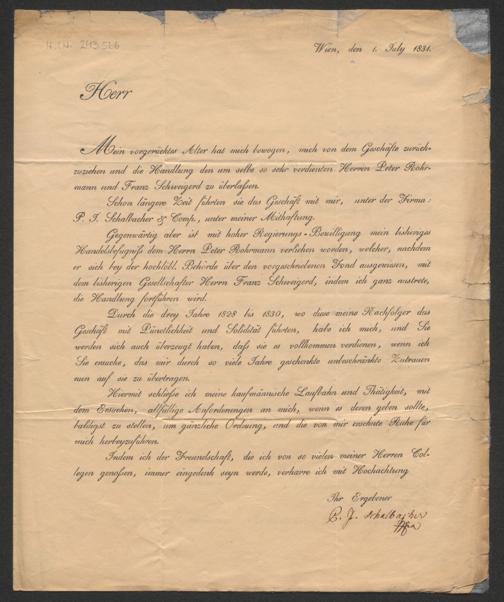 H.I.N. 243526
Wien, den 1. July 1831.
Herr
Mein vorgerücktes Alter hat mich bewogen, mich von dem Geschäfte zurück-
zuziehen und die Handlung den um selbe so sehr verdienten Herren Peter Rohr-
mann und Franz Schweigerd zu überlaßen.
Schon längere Zeit führten sie das Geschäft mit mir, unter der Firma:
P. J. Schalbacher & Comp., unter meiner Mithaftung.
Gegenwärtig aber ist mit hoher Regierungs-Bewilligung mein bisheriges
Handelsbefugniß dem Herrn Peter Rohrmann verliehen worden, welcher, nachdem
er sich bey der hochlöbl. Behörde über den vorgeschriebenen Fond ausgewiesen, mit
dem bisherigen Gesellschafter Herrn Franz Schweigerd, indem ich ganz austrete,
die Handlung fortführen wird.
Durch die drey Jahre 1828 bis 1830, wo diese meine Nachfolger das
Geschäft mit Pünctlichkeit und Solidität führten, habe ich mich, und Sie
werden sich auch überzeugt haben, daß sie es vollkommen verdienen, wenn ich
Sie ersuche, das mir durch so viele Jahre geschenkte unbeschränkte Zutrauen
nun auf sie zu übertragen.
Hiermit schließe ich meine kaufmännische Laufbahn und Thätigkeit, mit
dem Ersuchen, allfällige Anforderungen an mich, wenn es deren geben sollte,
baldigst zu stellen, um gänzliche Ordnung, und die von mir ersehnte Ruhe für
mich herbeyzuführen.
Indem ich der Freundschaft, die ich von so vielen meiner Herren Col-
legen genoßen, immer eingedenk seyn werde, verharre ich mit Hochachtung
Ihr Ergebener
P. J. Schalbacher